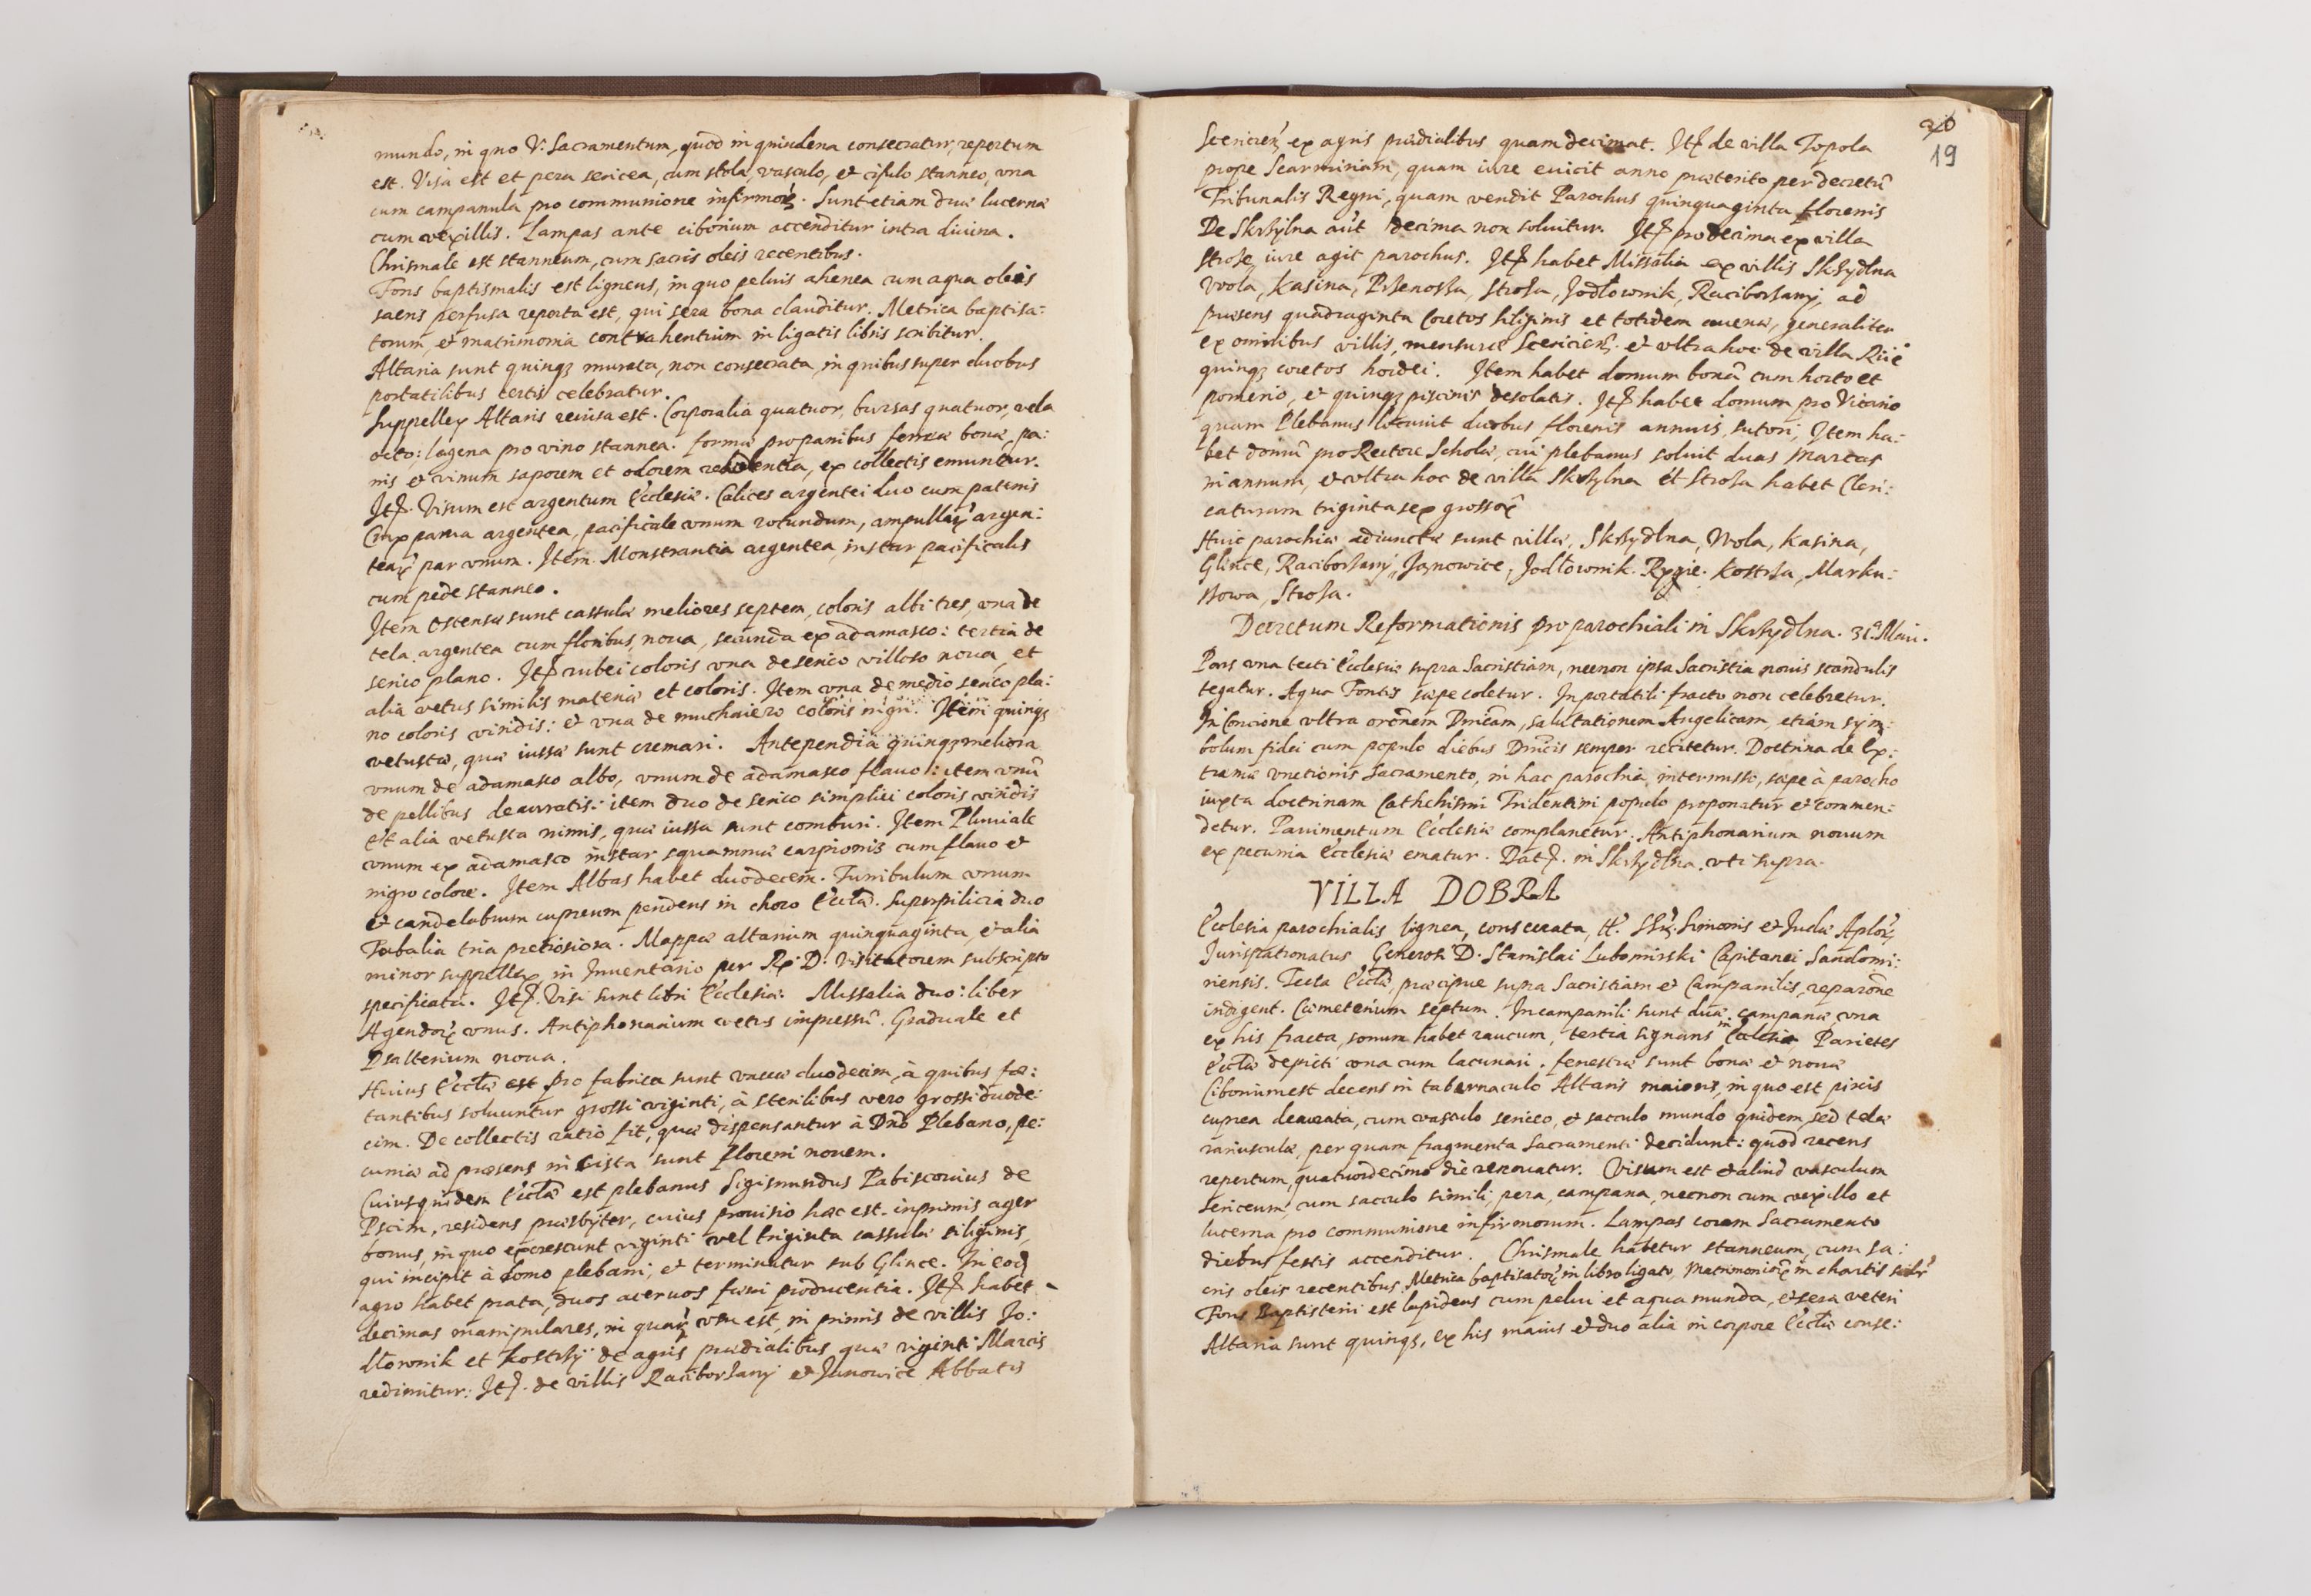 mundo, in quo V. Sacramentum, quod in quindena consecratur, repertum
est. Visa est et pera sericea, cum stola, vasculo, et cifulo stanneo, vna
cum campanula pro communione infirmorꝫ. Sunt etiam duæ lucernæ
cum vexillis. Lampas ante ciborium accenditur intra diuina.
Chrismale est stanneum, cum sacris oleis recentibus.
Fons baptismalis est ligneus, in quo peluis ahenea cum aqua oleis
sacris perfusa reperta est, qui sera bona clauditur. Metrica baptisa:
torum, et matrimonia contrahentium in ligatis libris scribitur.
Altaria sunt quinqꝫ murata, non consecrata, in quibus super duobus
portatilibus tertis celebratur.
Suppellex Altaris reuisa est. Corporalia quatuor, bursas quatuor, vela
octo; lagena pro vino stannea. formæ pro panibus ferreæ bonæ, pa:
nis et vinum saporem et odorem redolentia, ex collectis emuntur.
Itꝫ. Visum est argentum Ecclesiæ. Calices argentei duo cum patenis
Crux parua argentea, pacificale vnum rotundum, ampullarꝫ argen:
tearꝫ par vnum. Item Monstrantia argentea, instar pacificalis
cum pede stanneo.
Item Ostensæ sunt cassulæ meliores septem, coloris albi tres, vna de
tela argentea cum floribus, noua, secunda ex adamasco: tertia de
serico plano. Itꝫ rubei coloris vna de serico villoso noua, et
alia vetus similis materiæ et coloris. Item vna de medio serico pla:
no coloris viridis: et vna de muchaiero coloris nigri. Item quinqꝫ
vetustæ, quæ iussæ sunt cremari. Antependia quinqꝫ meliora
vnum de adamasco albo, vnum de adamasco flauo: item vnū
de pellibus deauratis: item duo de serico simplici coloris viridis
Et alia vetusta nimis, quæ iussa sunt comburi. Item Pluuiale
vnum ex adamasco instar squammæ carpionis cum flauo et
nigro colore. Item Albas habet duodecem. Turribulum vnum
et candelabrum cupreum pendens in choro Ecclæ. Superpilicia duo
Tobalia tria pretiosiora. Mappæ altarium quinquaginta, et alia
minor suppellex in Inuentario per Rꝫ. D. Visitatorem subscripto
specificata. Itꝫ. Visi sunt libri Ecclesiæ. Missalia duo: liber
Agendorꝫ vnus. Antiphonarium vetus impressū. Graduale et
Psalterium noua.
Huius Ecclæ est pro fabrica sunt vaccæ duodecim, à quibus foe:
tantibus soluuntur grossi viginti, à sterilibus vero grossi duode:
cim. De collectis ratio fit, quæ dispensantur à Dnō Plebano, pe:
cuniæ ad præsens in Cista sunt floreni nouem.
Cuius quidem Ecclæ est plebanus Sigismundus Pabiscouius de
Pscim, residens præsbyter, cuius prouisio hæc est. inprimis ager
bonus, in quo excrescunt viginti vel triginta cassulæ siliginis,
qui incipit à domo plebani, et terminatur sub Glince. In eodꝫ
agro habet prata, duos aceruos foeni producentia. Itꝫ habet
decimas manipulares, in quarꝫ vsu est, in primis de villis Jo:
dłownik et Kostrsÿ de agris prædialibus quæ viginti Marcis
redimitur: Itꝫ. de villis Raciborsany et Janowice Abbatis
20
19
Sciricienꝫ ex agris prædialibus quam decimat. Itꝫ de villa Topola
prope Scarminiam, quam iure euicit anno præterito per decretū
Tribunalis Regni, quam vendit Parochus quinquaginta florenis
De Skrsylna aūt decima non soluitur. Itꝫ pro decima ex villa
Strose iure agit parochus. Itꝫ habet Missalia ex villis Skrsydlna
Wola, Kasina, Prsenossa, Strosa, Jodłownik, Raciborsany, ad
præsens quadraginta Coretos siliginis et totidem auenæ, generaliter
ex omnibus villis, mensuræ Sciricienꝫ. et vltra hoc de villa Riie
quinqꝫ coretos hordei. Item habet domum bonā cum horto et
pomerio, et quinqꝫ piscinis desolatis. Itꝫ habet domum pro Vicario
quam Plebanus locauit duobus florenis annuis, sutori, Item ha:
bet domū pro Rectore Scholæ, cui plebanus soluit duas Marcas
in annum, et vltra hoc de villa Skrsylna et Strosa habet Cleri:
caturam triginta sex grossorꝫ
Huic parochiæ adiunctæ sunt villæ, Skrsydlna, Wola, Kasina,
Glince, Raciborsany, Janowice, Jodłownik. Rygie. Kostrsa, Marku:
ssowa, Strosa.
Decretum Reformationis pro parochiali in Skrsydlna. 31ᵃ Maii.
Pars vna tecti Ecclesiæ supra Sacristiam, necnon ipsa Sacristia nouis scandulis
tegatur. Aqua Fontis sæpe coletur. In portatili fracto non celebretur.
In Concione vltra orōnem Dnicam, salutationem Angelicam, etiam sym:
bolum fidei cum populo diebus Dnicis semper recitetur. Doctrina de Ex:
tremæ vnctionis Sacramento, in hac parochia intermisso, sæpe à parocho
iuxta doctrinam Cathehismi Tridentini populo proponatur et commen:
detur. Pauimentum Ecclesiæ complanetur. Antiphonarium nouum
ex pecunia Ecclesiæ ematur. Datꝫ. in Skrsydlna. vti supra.
VILLA DOBRA
Ecclesia parochialis lignea, consecrata, tt. SSrꝫ. Simonis et Judæ Aplorꝫ
Jurispatronatus Generosi D. Stanislai Lubomirski Capitanei Sandomi:
riensis. Tecta Ecclæ, præcipue supra Sacristiam et Campanilis, reparōne
indigent. Cæmeterium septum. In campanili sunt duæ campanæ, vna
ex his fracta, sonum habet raucum, tertia signans in Ecclesia. Parietes
Ecclæ depicti vna cum lacunari. fenestræ sunt bonæ et nouæ
Ciborium est decens in tabernaculo Altaris maioris, in quo est pixis
cuprea deaurata, cum vasculo sericeo, et sacculo mundo quidem, sed telæ
rariusculæ, per quam fragmenta Sacramenti decidunt: quod recens
repertum, quatuordecimo die renouatur. Visum est et aliud vasculum
sericeum, cum sacculo simili, pera, campana, necnon cum vexillo et
lucerna pro communione infirmorum. Lampas coram Sacramento
diebus festis accenditur. Chrismale habetur stanneum, cum sa:
cris oleis recentibus, Metrica baptisatorꝫ in libro ligato, Matrimoniorꝫ in chartis
Fons Baptisterii est lapideus cum pelui et aqua munda, et sera veteri
Altaria sunt quinqꝫ, ex his maius et duo alia in corpore Ecclæ conse: